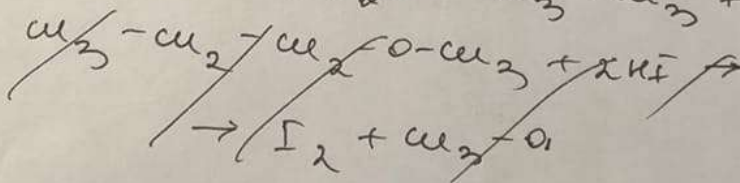 CH₃-CH₂-CH₂-O-CH₃ + 2HI →
→ I₂ + CH₃-O,